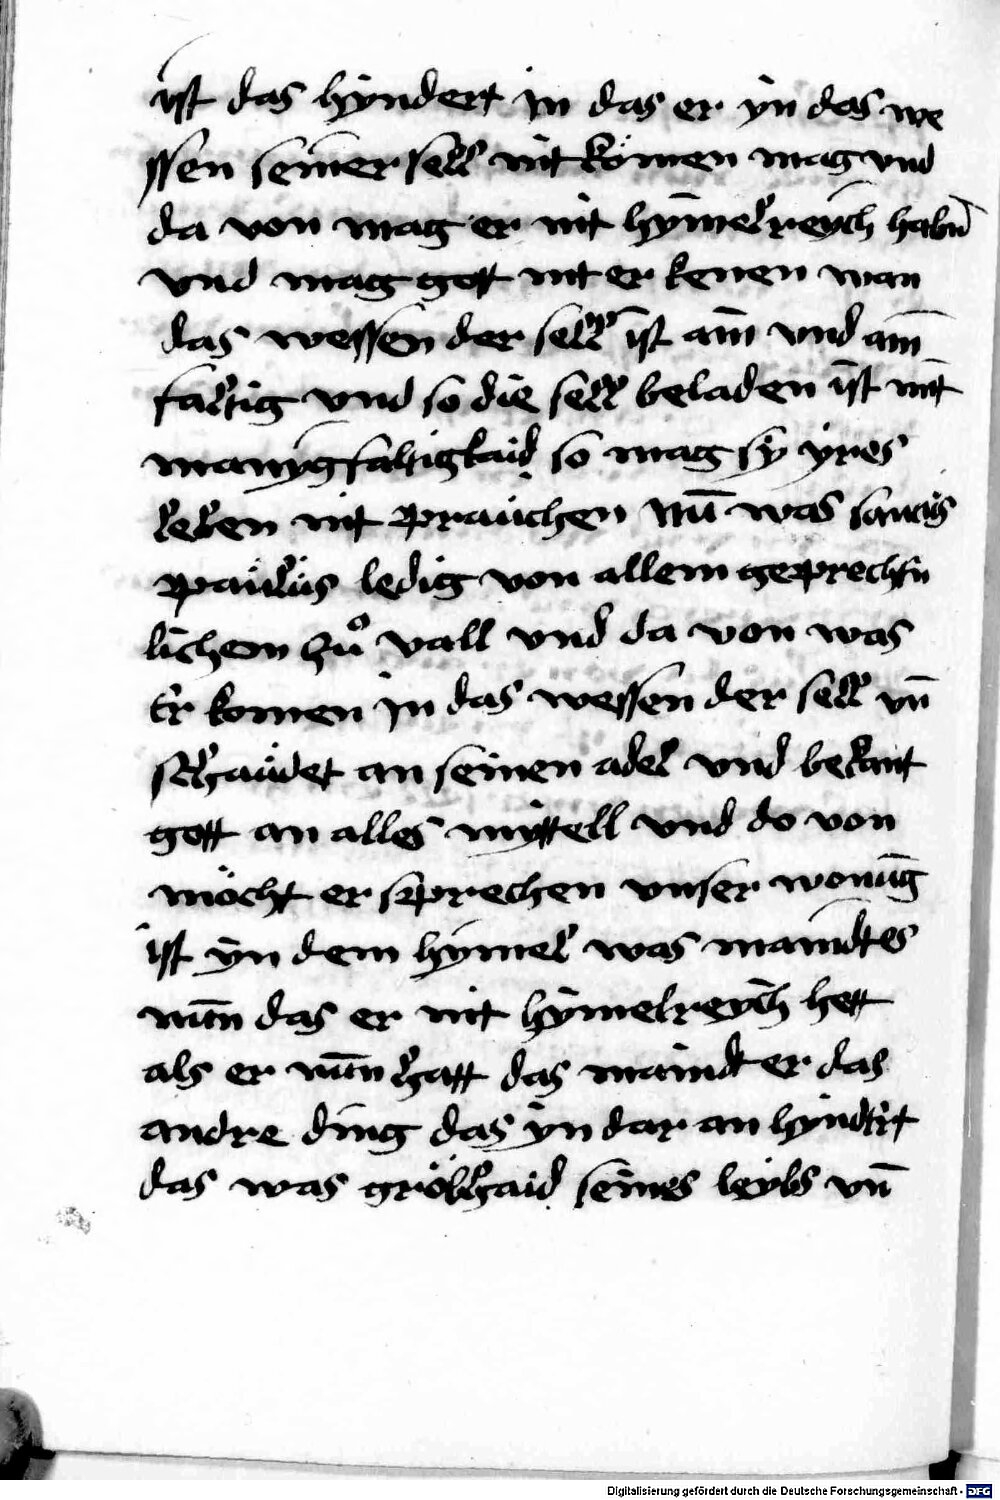 ist das hyndert in das er yn das we
ssen seiner sell nit kömen mag vnd
da von mag er nit hymelreych habn̄
vnd mag gott nit er kenen wan
das wessen der sell ist ain̄ vnd ain̄
faltig vnd so die sell beladen ist mit
manygfaltigkaid so mag sy yres
leben nit prauchen Nū was sanctus
paulus ledig von allem geprechn̄
lichem zuͦ vall vnd da von was
Er komen in das wessen der sell vn̄
schaüdet an seinen adel vnd bekant
gott an alles myttell vnd do von
möcht er sprechen vnser wonūg
ist yn dem hymel was maindt es
das er nit hymelreych hett
als er hatt das maindt er das
andre ding das yn dar an hyndrt
das was grobhaid seines leybs vn̄
Digitalisierung gefördert durch die Deutsche Forschungsgemeinschaft - DFG